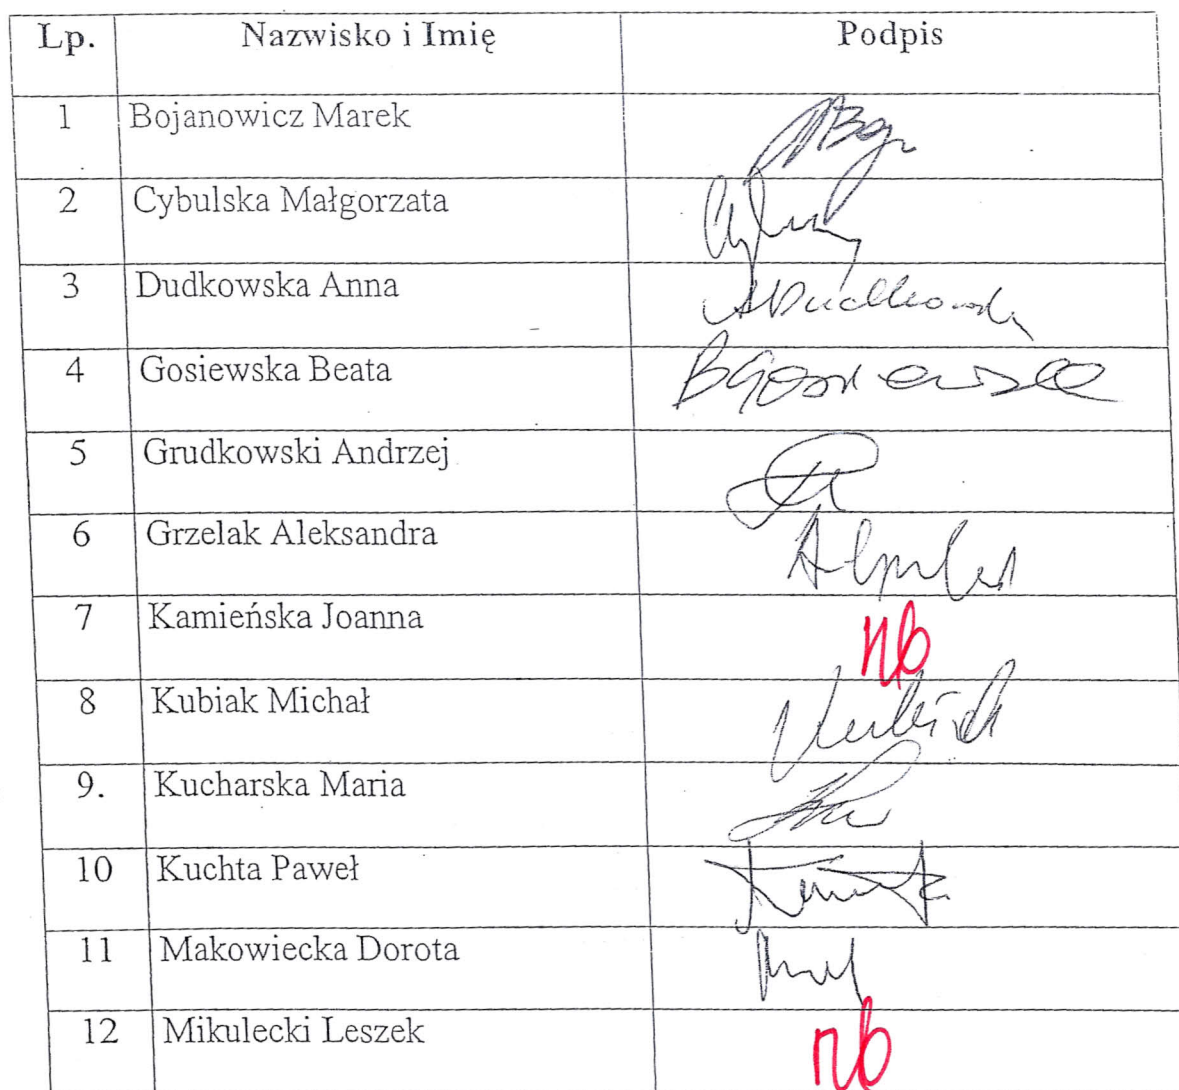 Lp. Nazwisko i Imię Podpis
1 Bojanowicz Marek
2 Cybulska Małgorzata
3 Dudkowska Anna ADudkowska
4 Gosiewska Beata BGosiewska
5 Grudkowski Andrzej
6 Grzelak Aleksandra
7 Kamieńska Joanna nb
8 Kubiak Michał Kubiak
9. Kucharska Maria
10 Kuchta Paweł
11 Makowiecka Dorota
12 Mikulecki Leszek nb